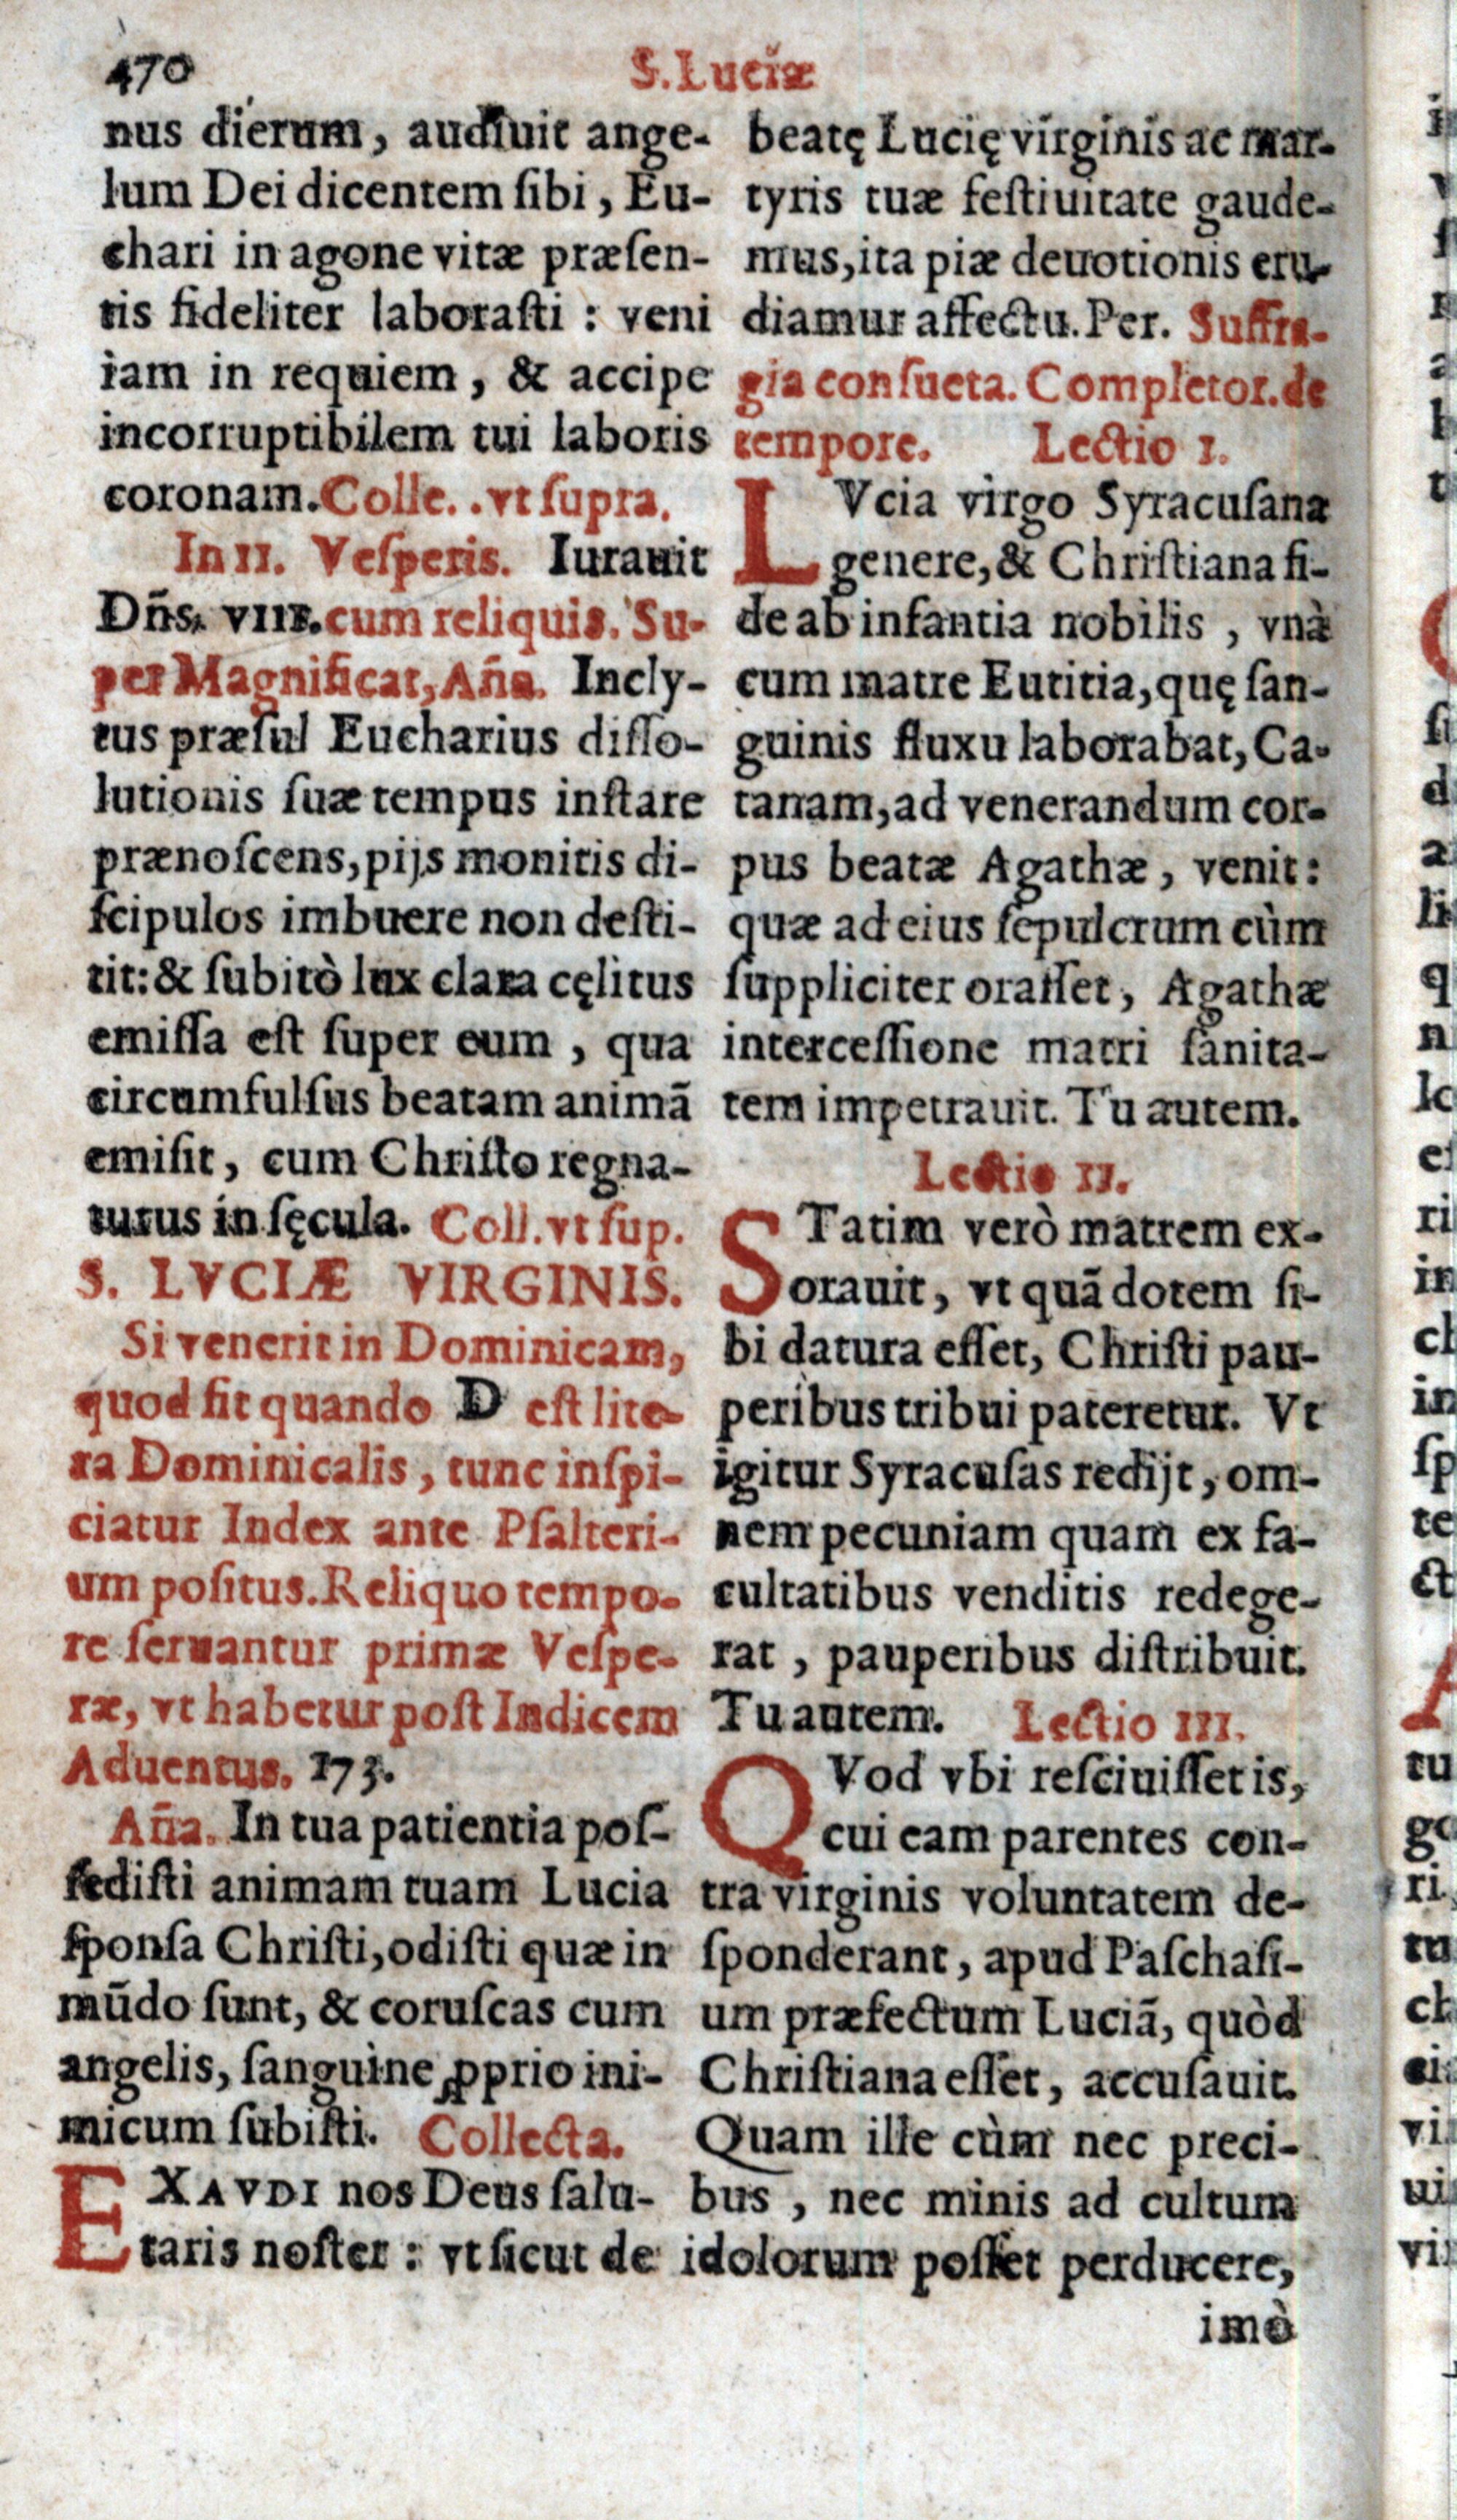 470
S. Luciæ
nus dierum, audiuit ange-
lum Dei dicentem ſibi, Eu-
chari in agone vitæ præſen-
tis fideliter laboraſti : veni
iam in requiem, & accipe
incorruptibilem tui laboris
coronam. Colle. . vt ſupra.
In II. Veſperis. Iurauit
Dñs. VIII. cum reliquis. Su-
per Magnificat, Aña. Incly-
tus præſul Eucharius diſſo-
lutionis ſuæ tempus inſtare
prænoſcens, pijs monitis di-
ſcipulos imbuere non deſti-
tit: & ſubitò lux clara cęlitus
emiſſa eſt ſuper eum, qua
circumfulſus beatam animã
emiſit, cum Chriſto regna-
turus in ſęcula. Coll. vt ſup.
S. LVCIÆ VIRGINIS.
Si venerit in Dominicam,
quod fit quando D eſt lite-
ra Dominicalis, tunc inſpi-
ciatur Index ante Pſalteri-
um poſitus. Reliquo tempo-
re ſeruantur primæ Veſpe-
ræ, vt habetur poſt Indicem
Aduentus. 173.
Aña. In tua patientia poſ-
ſediſti animam tuam Lucia
ſponſa Chriſti, odiſti quæ in
mũdo ſunt, & coruſcas cum
angelis, ſanguine ꝓprio ini-
micum ſubiſti. Collecta.
EXAVDI nos Deus ſalu-
taris noſter : vt ſicut de
beatę Lucię virginis ac mar-
tyris tuæ feſtiuitate gaude-
mus, ita piæ deuotionis eru-
diamur affectu. Per. Suffra-
gia conſueta. Completor. de
tempore. Lectio I.
LVcia virgo Syracuſana
genere, & Chriſtiana fi-
de ab infantia nobilis, vnà
cum matre Eutitia, quę ſan-
guinis fluxu laborabat, Ca-
tanam, ad venerandum cor-
pus beatæ Agathæ, venit:
quæ ad eius ſepulcrum cùm
ſuppliciter oraſſet, Agathæ
interceſſione matri ſanita-
tem impetrauit. Tu autem.
Lectio II.
STatim verò matrem ex-
orauit, vt quã dotem ſi-
bi datura eſſet, Chriſti pau-
peribus tribui pateretur. Vt
igitur Syracuſas redijt, om-
nem pecuniam quam ex fa-
cultatibus venditis redege-
rat, pauperibus diſtribuit.
Tu autem. Lectio III.
QVod vbi reſciuiſſet is,
cui eam parentes con-
tra virginis voluntatem de-
ſponderant, apud Paſchaſi-
um præfectum Luciã, quòd
Chriſtiana eſſet, accuſauit.
Quam ille cùm nec preci-
bus, nec minis ad cultum
idolorum poſſet perducere,
imò